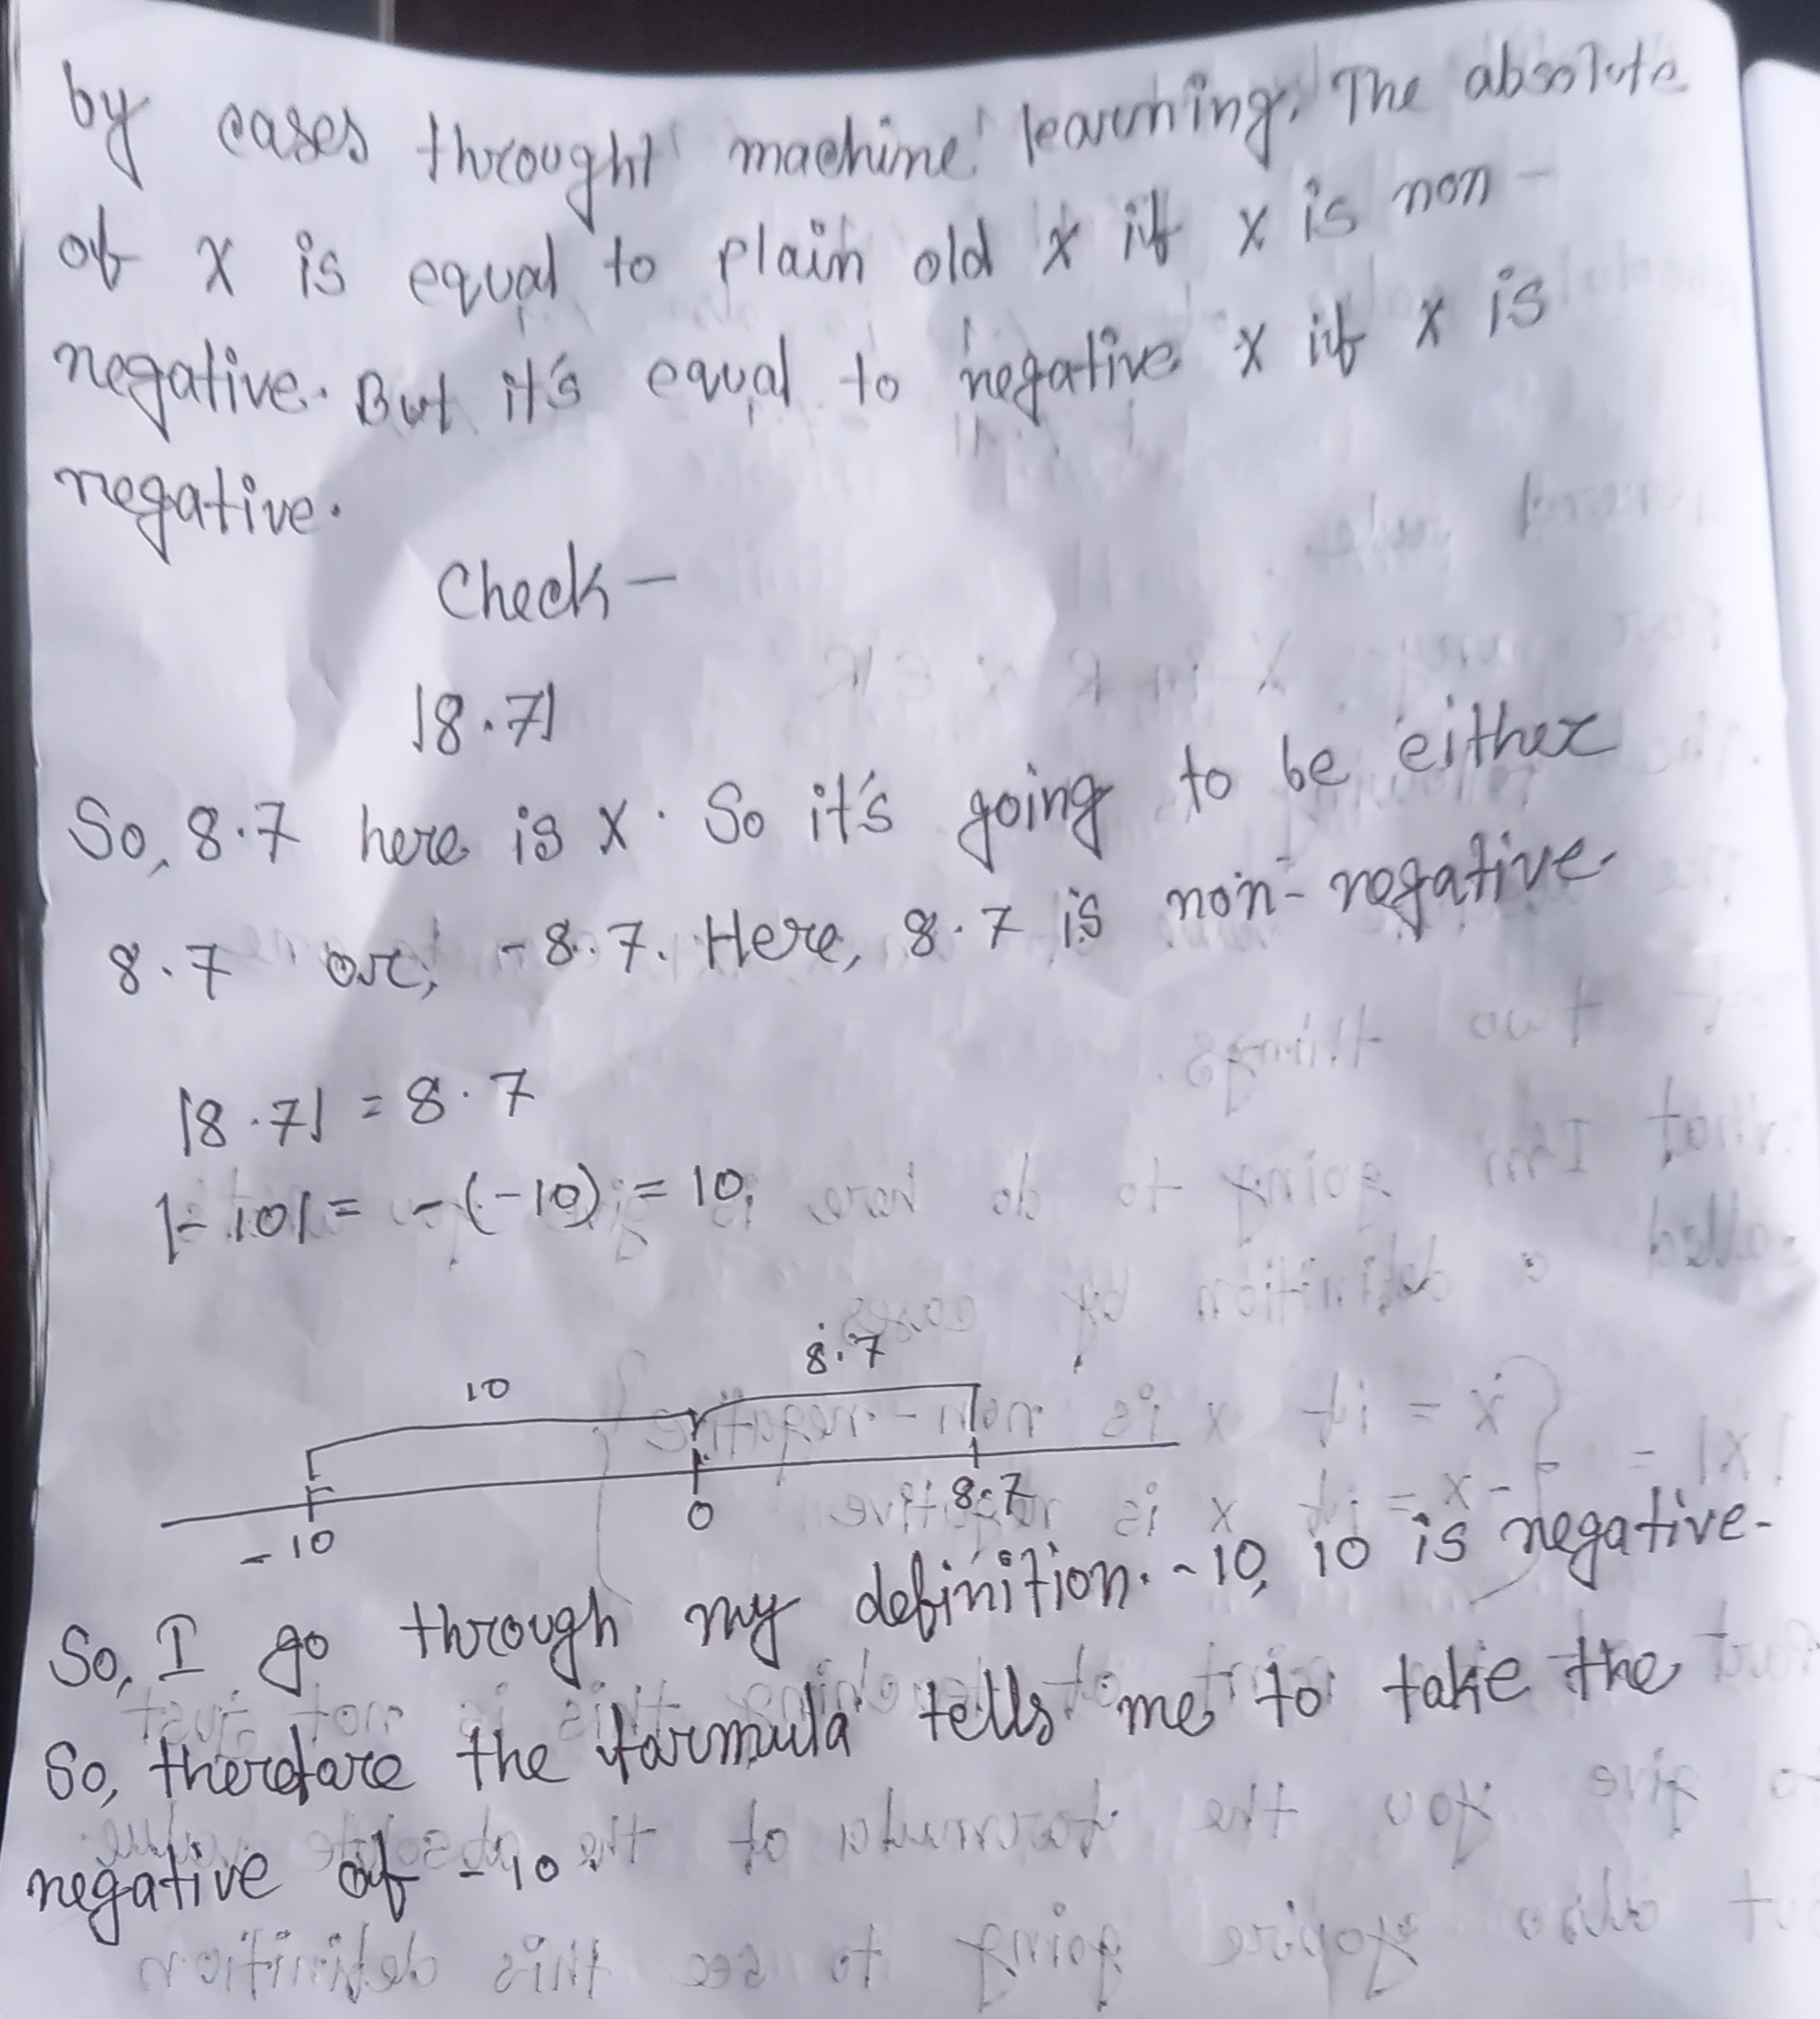 by cases throught machine learning. The absolute
of x is equal to plain old x if x is non-
negative. But it's equal to negative x if x is
negative.
Check-
|8.7|
So, 8.7 here is x. So it's going to be either
8.7 or, -8.7. Here, 8.7 is non-negative.
|8.7| = 8.7
|-10| = -(-10) = 10.
10 8.7
-10 0 8.7
So, I go through my definition. -10, 10 is negative.
So, therefore the formula tells me to take the
negative of -10.